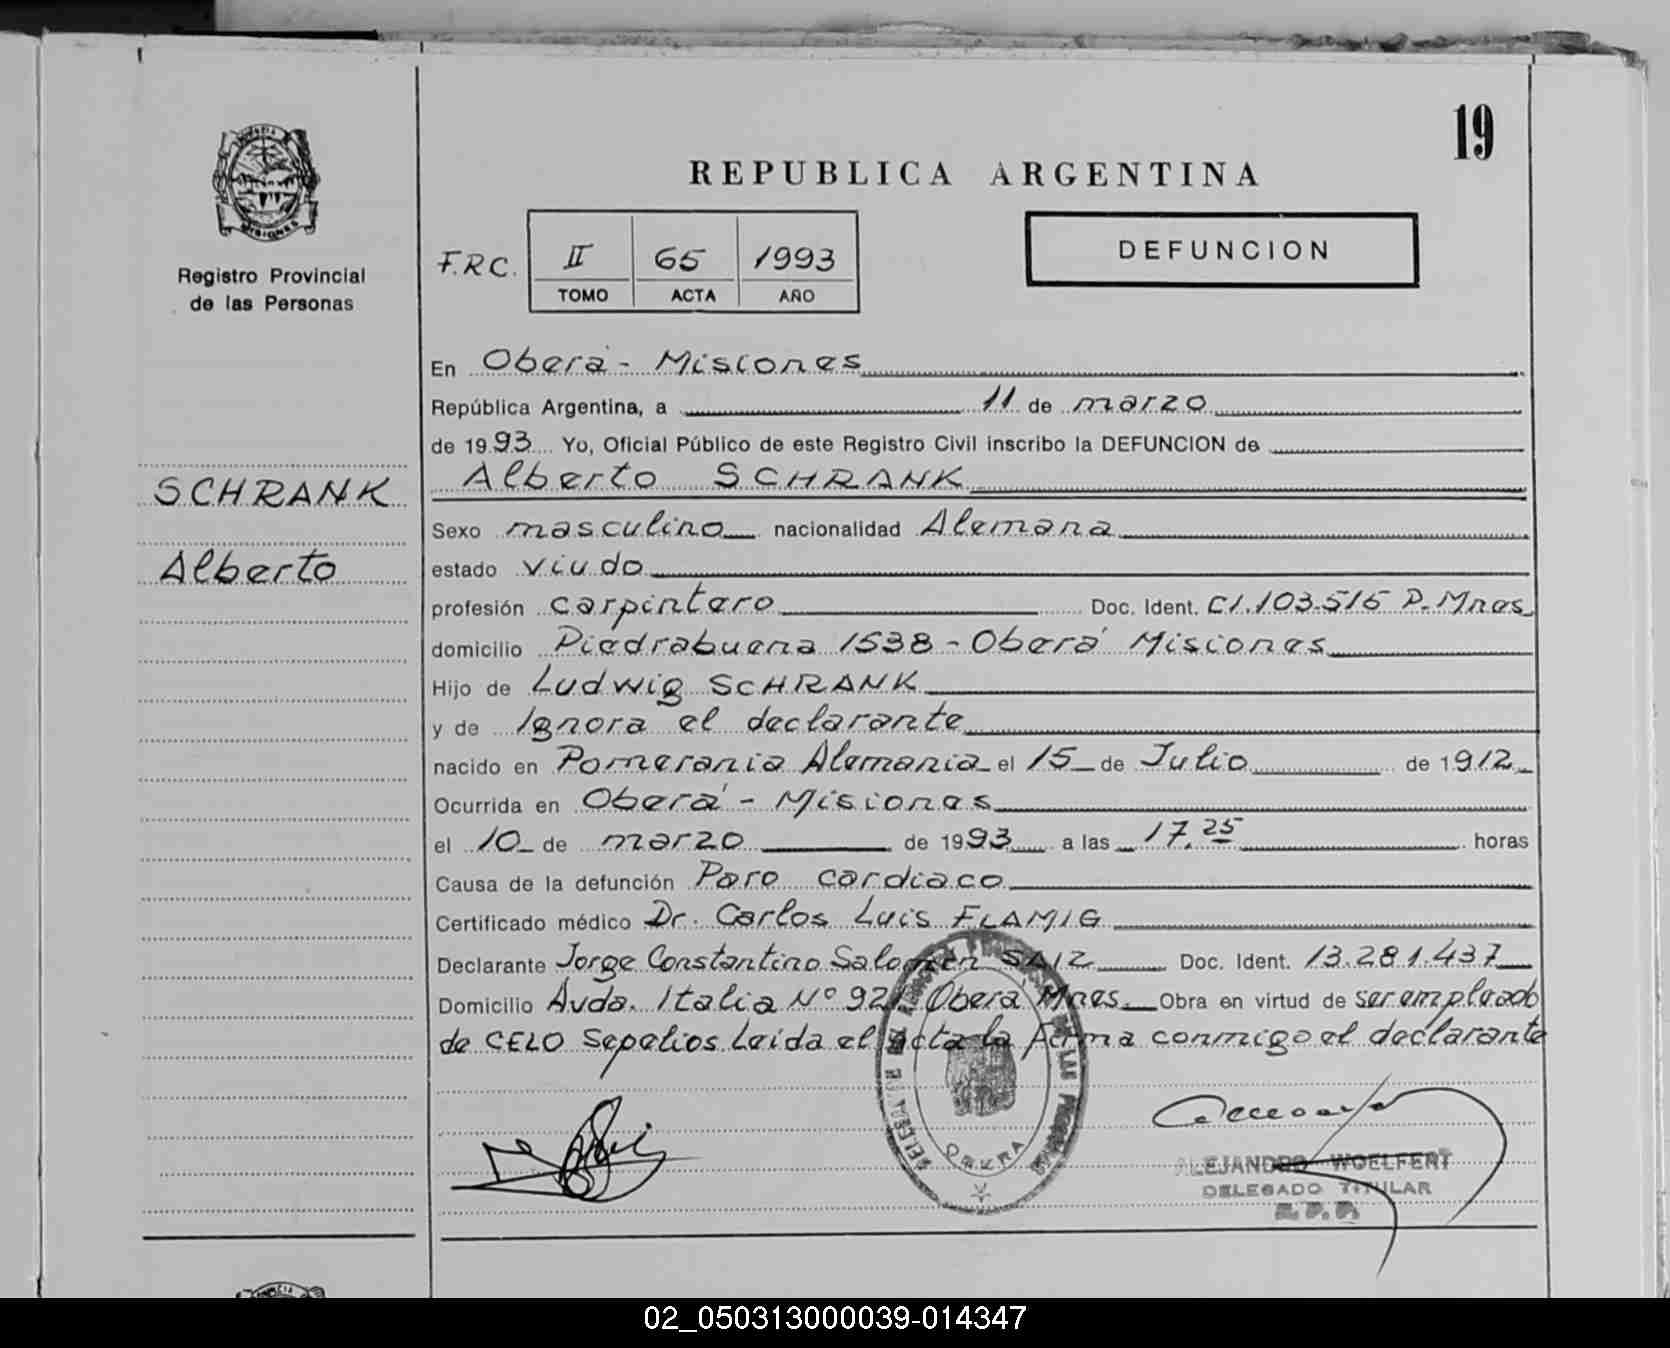 19
REPUBLICA ARGENTINA
MISIONES
Registro Provincial
de las Personas
F.R.C. II 65 1993
TOMO ACTA AÑO
DEFUNCION
En Oberá - Misiones
República Argentina, a 11 de marzo
de 1993 Yo, Oficial Público de este Registro Civil inscribo la DEFUNCION de
SCHRANK
Alberto
Alberto SCHRANK
Sexo masculino nacionalidad Alemana
estado viudo
profesión carpintero Doc. Ident. CI.103.515 P. Mnes
domicilio Piedrabuena 1538 - Oberá Misiones
Hijo de Ludwig SCHRANK
y de Ignora el declarante
nacido en Pomerania Alemania el 15 de Julio de 1912
Ocurrida en Oberá - Misiones
el 10 de marzo de 1993 a las 17.25 horas
Causa de la defunción Paro cardiaco
Certificado médico Dr. Carlos Luis FLAMIG
Declarante Jorge Constantino Salomón SAIZ Doc. Ident. 13.281.437
Domicilio Avda. Italia Nº 921 Oberá Mnes. Obra en virtud de ser empleado
de CELO Sepelios. Leida el acta la firma conmigo el declarante
ALEJANDRO WOELFERT
DELEGADO TITULAR
R. P. P.
02_050313000039-014347